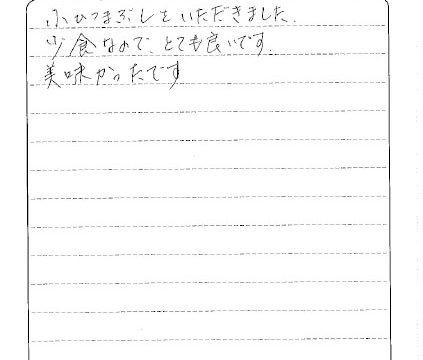 小ひつまぶしをいただきました.
少食なので、とても良いです.
美味かったです